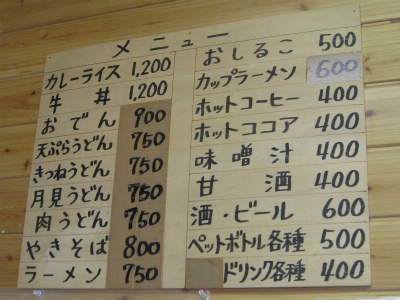 メニュー
カレーライス 1,200
牛丼 1,200
おでん 900
天ぷらうどん 750
きつねうどん 750
月見うどん 750
肉うどん 750
やきそば 800
ラーメン 750
おしるこ 500
カップラーメン 600
ホットコーヒー 400
ホットココア 400
味噌汁 400
甘酒 400
酒・ビール 600
ペットボトル各種 500
ドリンク各種 400